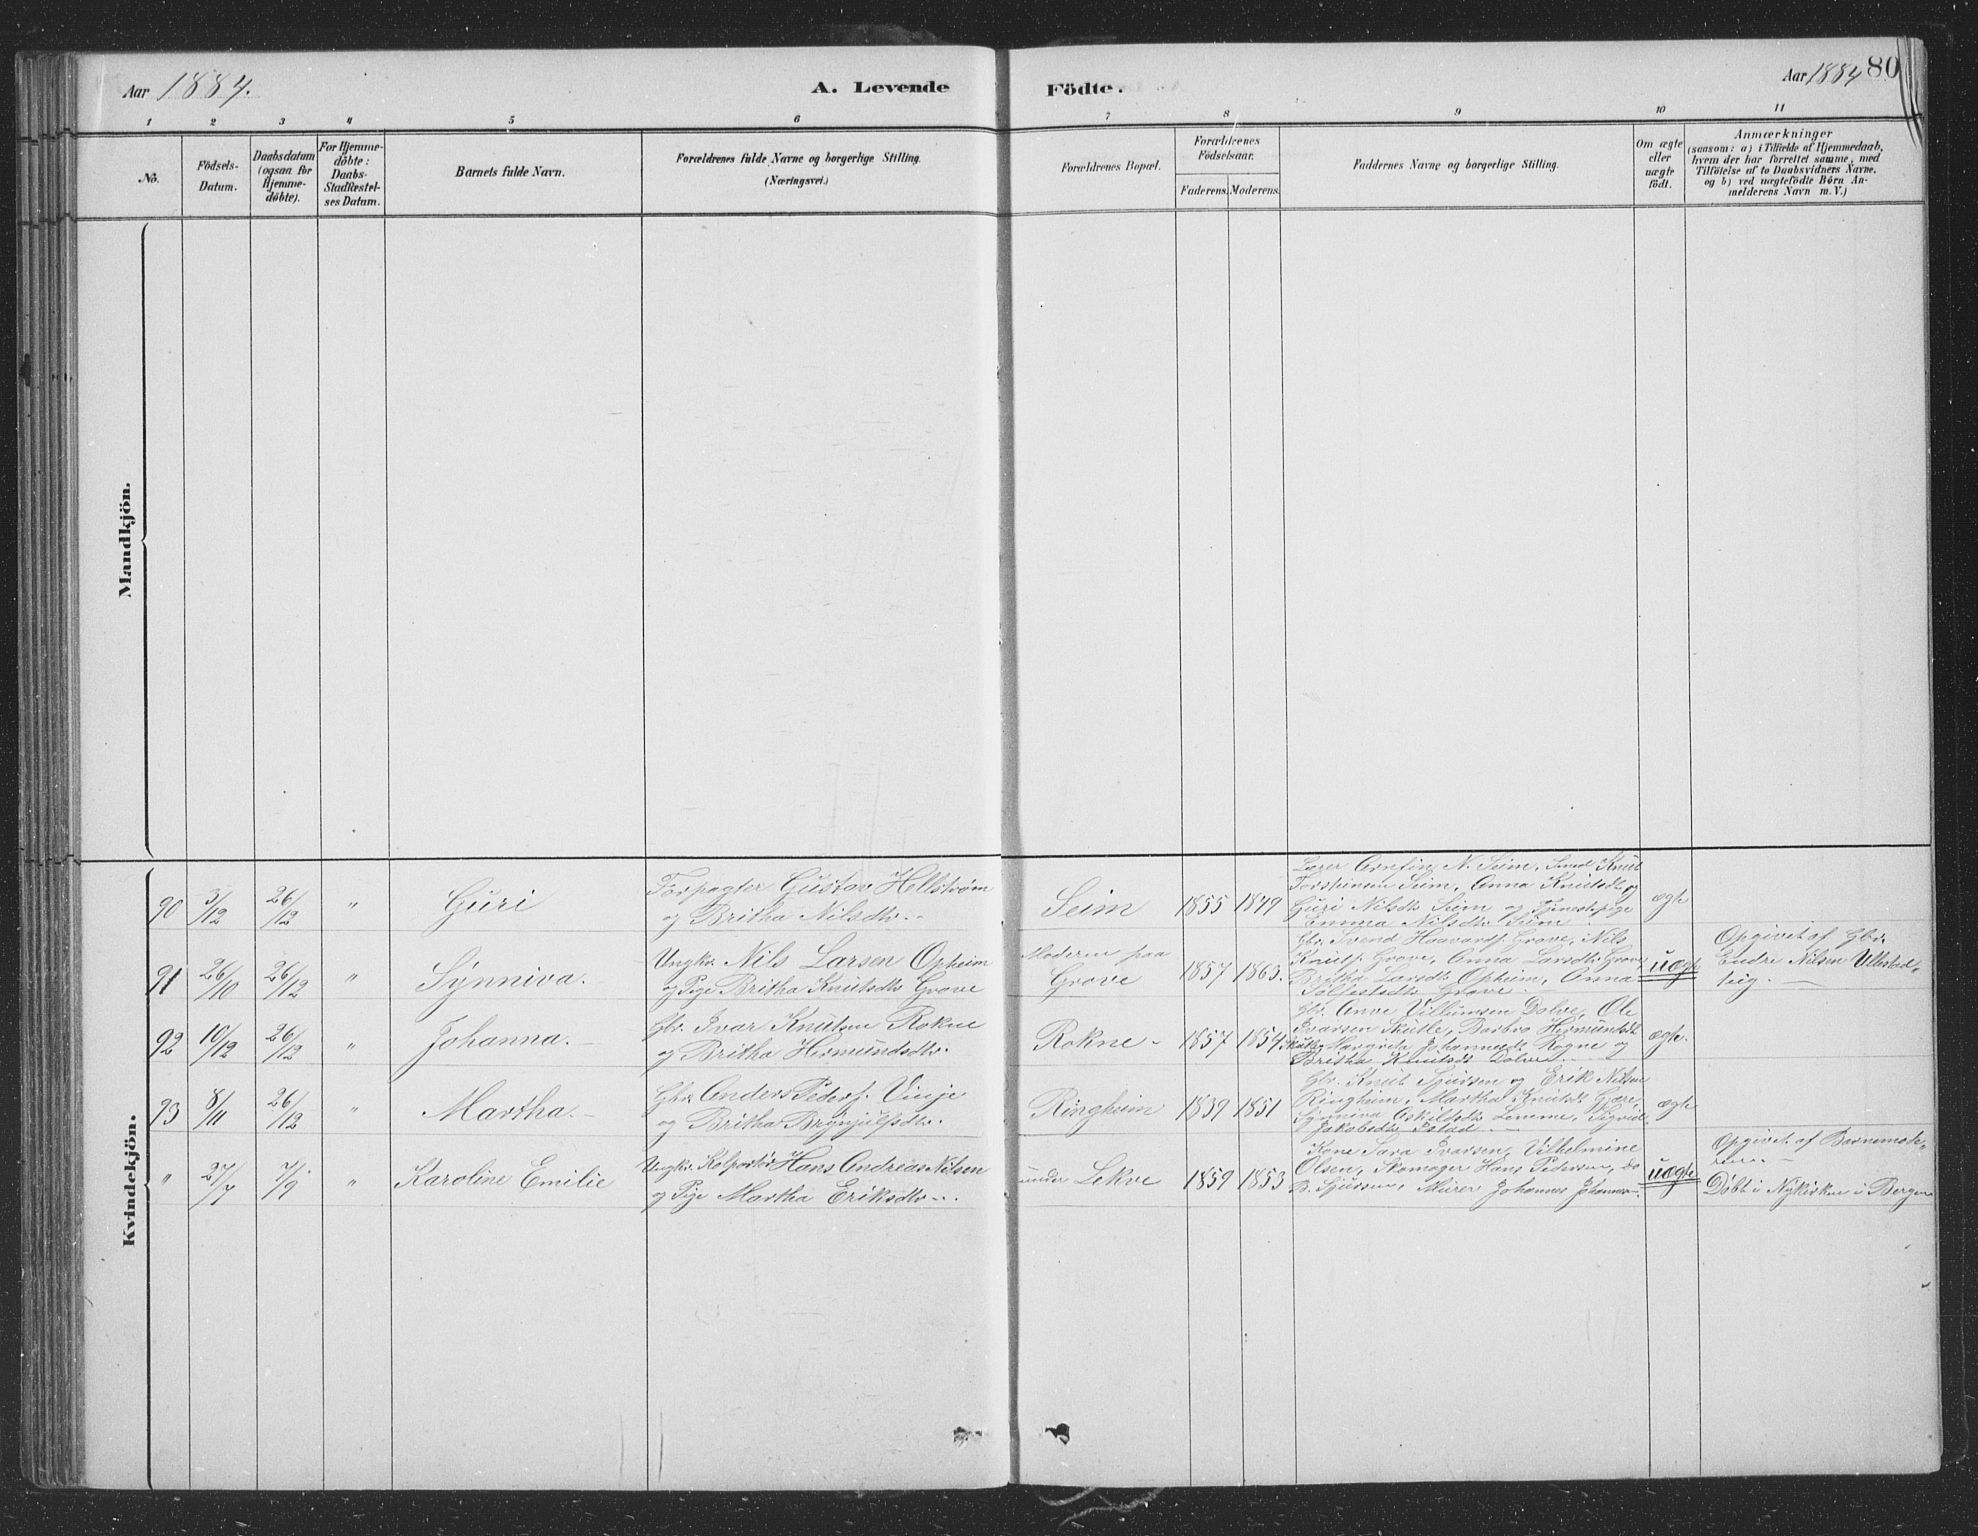 Aar 1884. A. Levende Födte. Aar 1884 80
1 2 3 4 5 6 7 8 9 10 11
No.
Födsels-
Datum.
Daabsdatum
(ogsaa for
Hjemme-
döbte).
For Hjemme-
döbte:
Daabs-
Stadfæstel-
ses Datum.
Barnets fulde Navn.
Forældrenes fulde Navne og borgerlige Stilling.
(Næringsvei.)
Forældrenes Bopæl.
Forældrenes
Födselsaar.
Faderens. Moderens.
Faddernes Navne og borgerlige Stilling.
Om ægte
eller
uægte
födt.
Anmærkninger
(saasom: a) i Tilfælde af Hjemmedaab,
hvem der har forrettet samme, med
Tilföielse af to Daabsvidners Navne,
og b) ved uægtefödte Børn An-
melderens Navn m. V.)
Mandkjön.
Kvindekjön.
90 3/12 26/12 " Guri
Forpagter Gustav Hellström
og Britha Nilsdtr.
Seim 1855 1849
Lærer Arnfin N. Seim, Smed Knut
Torsteinsen Seim, Anna Knutsdtr og
Guri Nilsdtr Seim og Tjenestepige
Emma Nilsdtr Seim
ægte
91 26/10 26/12 " Synniva.
Ungkr. Nils Larsen Opheim
og Pige Britha Knutsdtr Grove
Moderen paa
Grove 1857 1863.
Gbr. Svend Haavardss. Grove, Nils
Knuts. Grove, Anna Larsdtr Grove
Britha Larsdtr Opheim, Anna
Grove
uægte
Opgivet af Gbr.
Endre Nilsen Ullestad-
teig.
92 10/12 26/12 " Johanna.
Gbr. Ivar Knutsen Rokne
og Britha Hermundsdtr.
Rokne 1857 1854
Gbr. Anve Villumsen Dolve, Ole
Ivarsen Skutle, Barbro Hermundsdtr
Skutle, Margreta Johannesdtr Rogne og
Britha Knutsdtr Dolve
ægte.
93 8/11 26/12 " Martha.
Gbr. Anders Peders. Vinje
og Britha Brynjulfsdtr.
Ringheim 1839 1851
Gbr. Knut Sjursen og Erik Nilsen
Ringheim, Martha Knutsdtr Gjære,
Synniva Oskilsdtr Lemme, Sigrid
Jakobsdtr Istad
ægte
" 27/7 7/9 " Karoline Emilie
Ungkr. Kolportör Hans Andreas Nilsen
og Pige Martha Eriksdtr.
under Lekve 1859 1853
Kone Sara Ivarsen, Vilhelmine
Olsen, Skomager Hans Pedersen, Do
B. Sjursen, Murer Johannes Johannes.
uægte
Opgivet af Barnemode-
ren.
Döbt i Nykirken i Bergen